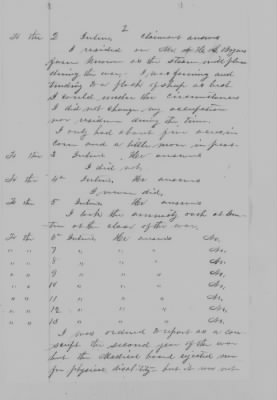 2
To the 2 Inter. Claimant answers
I resided on Mr. H. H. Bryans
farm known as the steam mill place
during the war. I was farming and
tending to a flock of sheep as best
I could under the circumstances
I did not change my occupation
nor residence during the time.
I only had about five acres in
corn and a little more in
To the 3 Inter. He answers
I did not.
To the 4th Inter. He answers
I never did.
To the 5 Inter. He answers
I took the amnesty oath at
at the close of the war.
To the 6th Inter. He answers No.
" " 7 " " " No.
" " 8 " " " No.
" " 9 " " " No.
" " 10 " " " No.
" " 11 " " " No.
" " 12 " " " No.
" " 13 " " " No.
I was ordered to report as a con-
script the second year of the war
but the Medical board rejected me
for physical disability but it was not